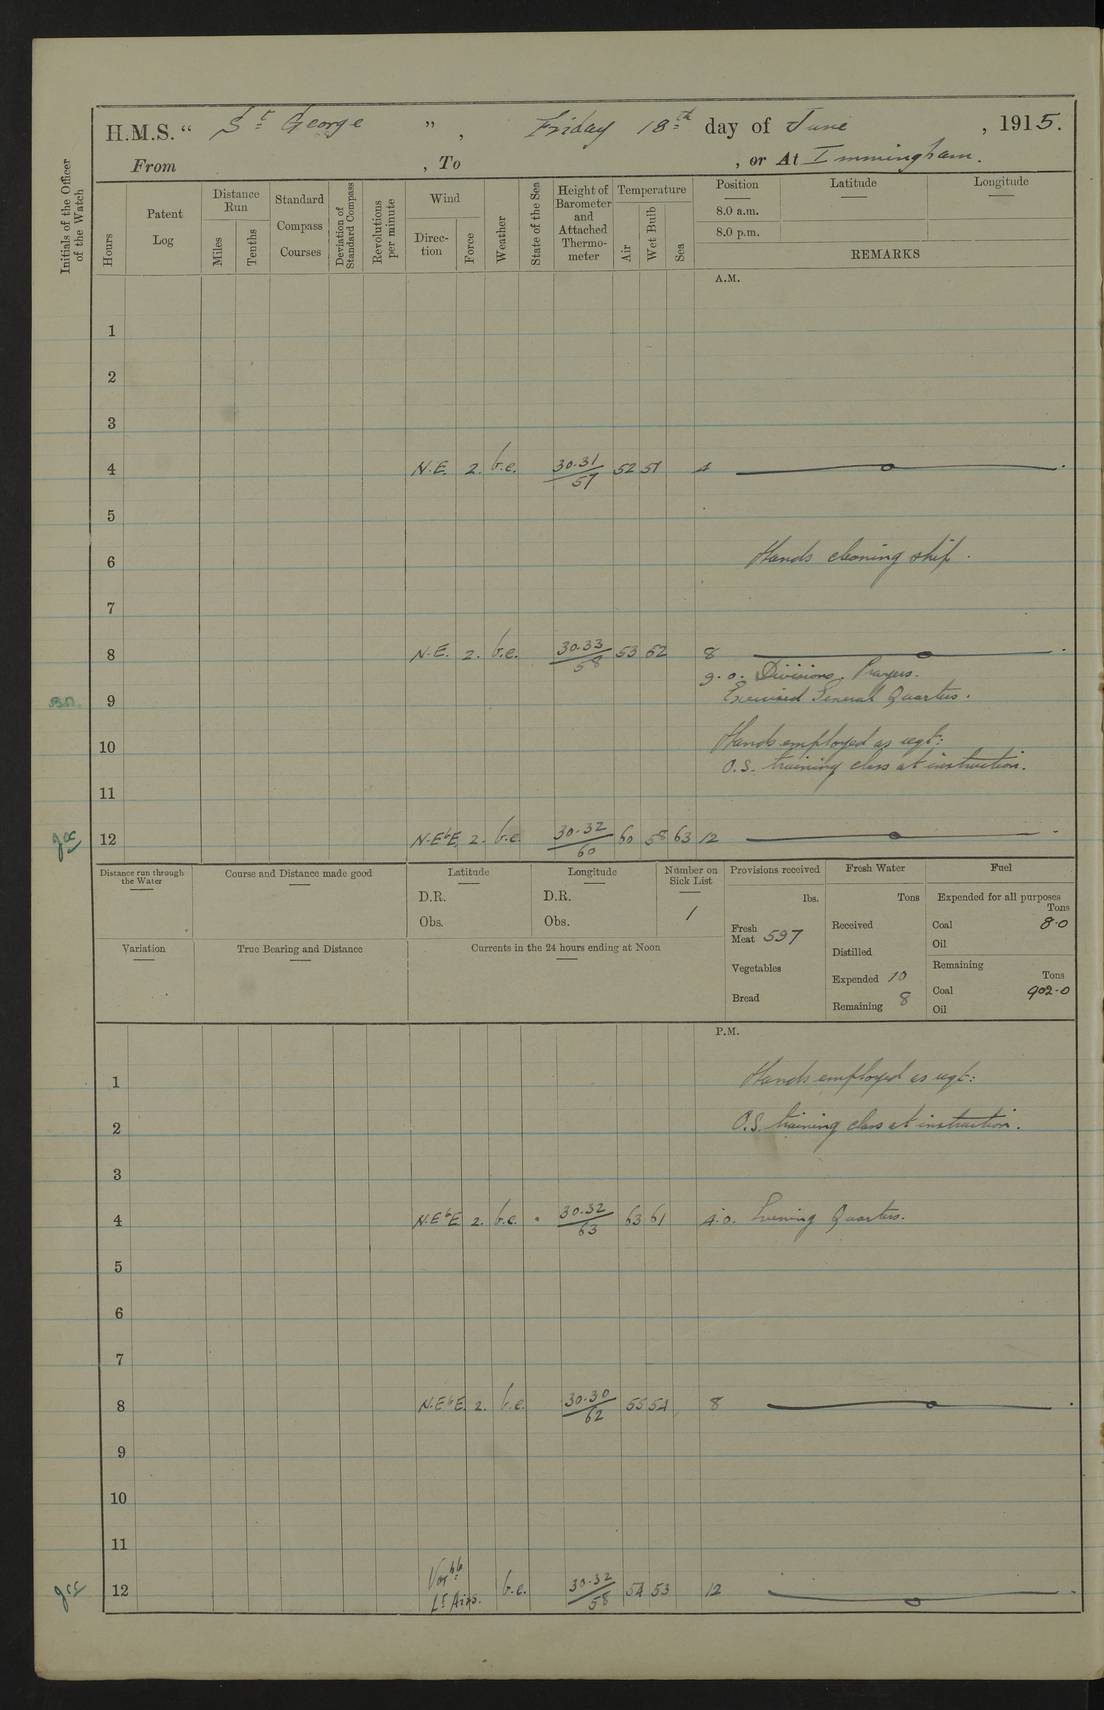 H.M.S. “ St George ” , Friday 18th day of June , 1915.
From , To , or At Immingham.
Initials of the Officer of the Watch
Hours
Patent Log
Distance Run
Miles
Tenths
Standard Compass Courses
Deviation of Standard Compass
Revolutions per minute
Wind
Direction
Force
Weather
State of the Sea
Height of Barometer and Attached Thermometer
Temperature
Air
Wet Bulb
Sea
Position Latitude Longitude
8.0 a.m.
8.0 p.m.
REMARKS
A.M.
1
2
3
4 N.E. 2. b.c. 30.31/57 52 51 4
5
6 Hands cleaning ship.
7
8 N.E. 2. b.c. 30.33/58 53 52 8
9.0. Divisions. Prayers.
9 Exercised General Quarters.
10 Hands employed as reqt:
O.S. training class at instruction.
11
12 N.EbE. 2. b.c. 30.32/60 60 58 63 12
Distance run through the Water
Course and Distance made good
Latitude
D.R.
Obs.
Longitude
D.R.
Obs.
Number on Sick List
1
Provisions received
lbs.
Fresh Meat 597
Vegetables
Bread
Fresh Water
Tons
Received
Distilled
Expended 10
Remaining 8
Fuel
Expended for all purposes
Tons
Coal 8.0
Oil
Remaining
Tons
Coal 902.0
Oil
Variation
True Bearing and Distance
Currents in the 24 hours ending at Noon
P.M.
1 Hands employed as reqt:
2 O.S. training class at instruction.
3
4 N.EbE 2. b.c. 30.32/63 63 61 4.0. Evening Quarters.
5
6
7
8 N.EbE. 2. b.c. 30.30/62 55 54 8
9
10
11
12 Varble Lt Airs. b.c. 30.32/58 54 53 12